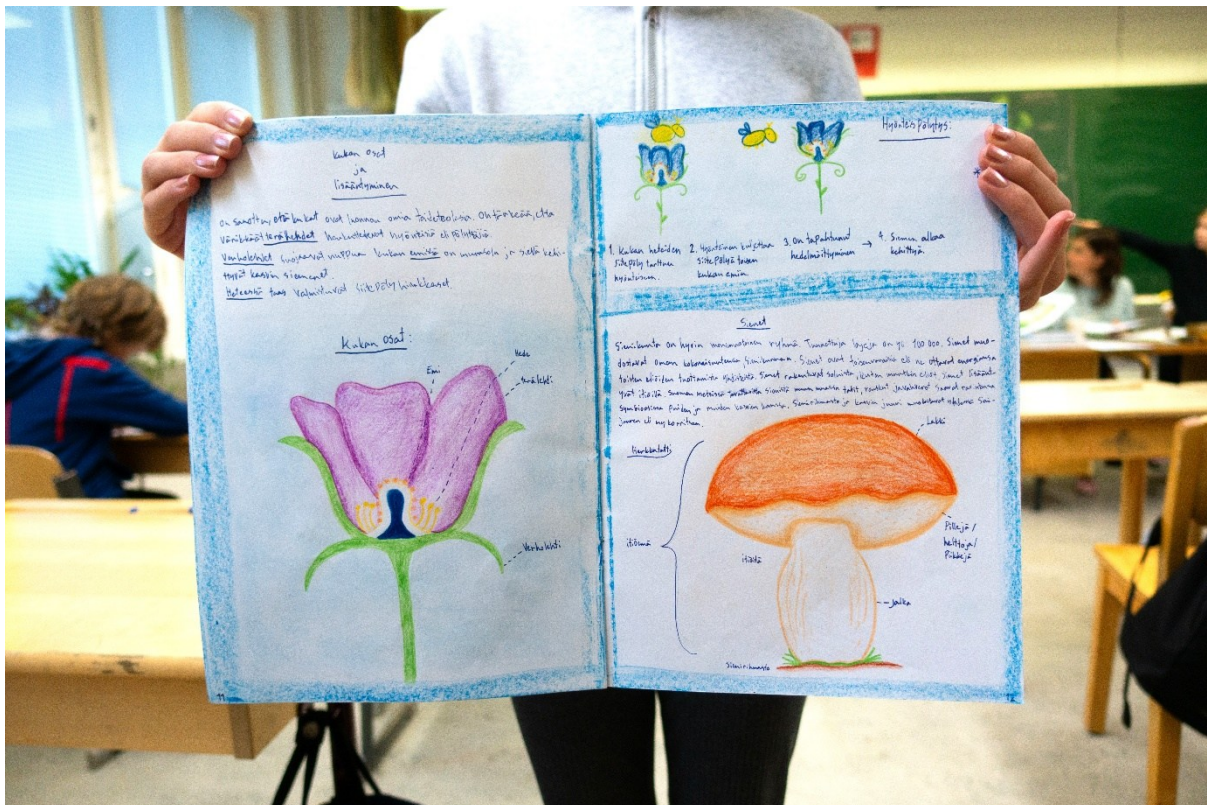 Kukan osat
ja
lisääntyminen
on sanottu, että kukat ovat luonnon omia taideteoksia. On tärkeää, että
värikkäät terälehdet houkuttelevat hyönteisiä eli pölyttäjiä.
Verholehdet suojaavat nuppua. Kukan emiö on munasola ja siellä kehi-
ttyvät kasvin siemenet.
Heteessä taas valmistuvat siitepölyhiukkaset.
Kukan osat:
Emi
Hede
terälehti
Verholehti
11
Hyönteispölytys:
1. Kukan heteiden
siitepöly tarttuu
hyönteiseen.
2. Hyönteinen kuljettaa
siitepölyä toisen
kukan emiin.
3. On tapahtunut
hedelmöittyminen
→ 4. Siemen alkaa
kehittyä.
Sienet
Sienikunta on hyvin monimuotoinen ryhmä. Tunnettuja lajeja on yli 100 000. Sienet muo-
dostavat oman kokonaisuutensa, sienikunnan. Sienet ovat toisenvaraisia eli ne ottavat energiansa
toisten eliöiden tuottamista Sienet rakentuvat soluista, kuten muutkin eliöt. Sienet lisäänt-
yvät itiöillä. Suomen metsissä sienillä muun muassa tatit, rouskut ja
symbioosissa puiden ja muiden kasvien kanssa. Sienirihmasto ja kasvin juuri muodostavat sie-
nijuuren eli mykorritsan.
Herkkutatti
itiöemä
Lakki
Pillejä/
helttoja/
Piikkejä
itiöitä
Jalka
Sienirihmasto
12